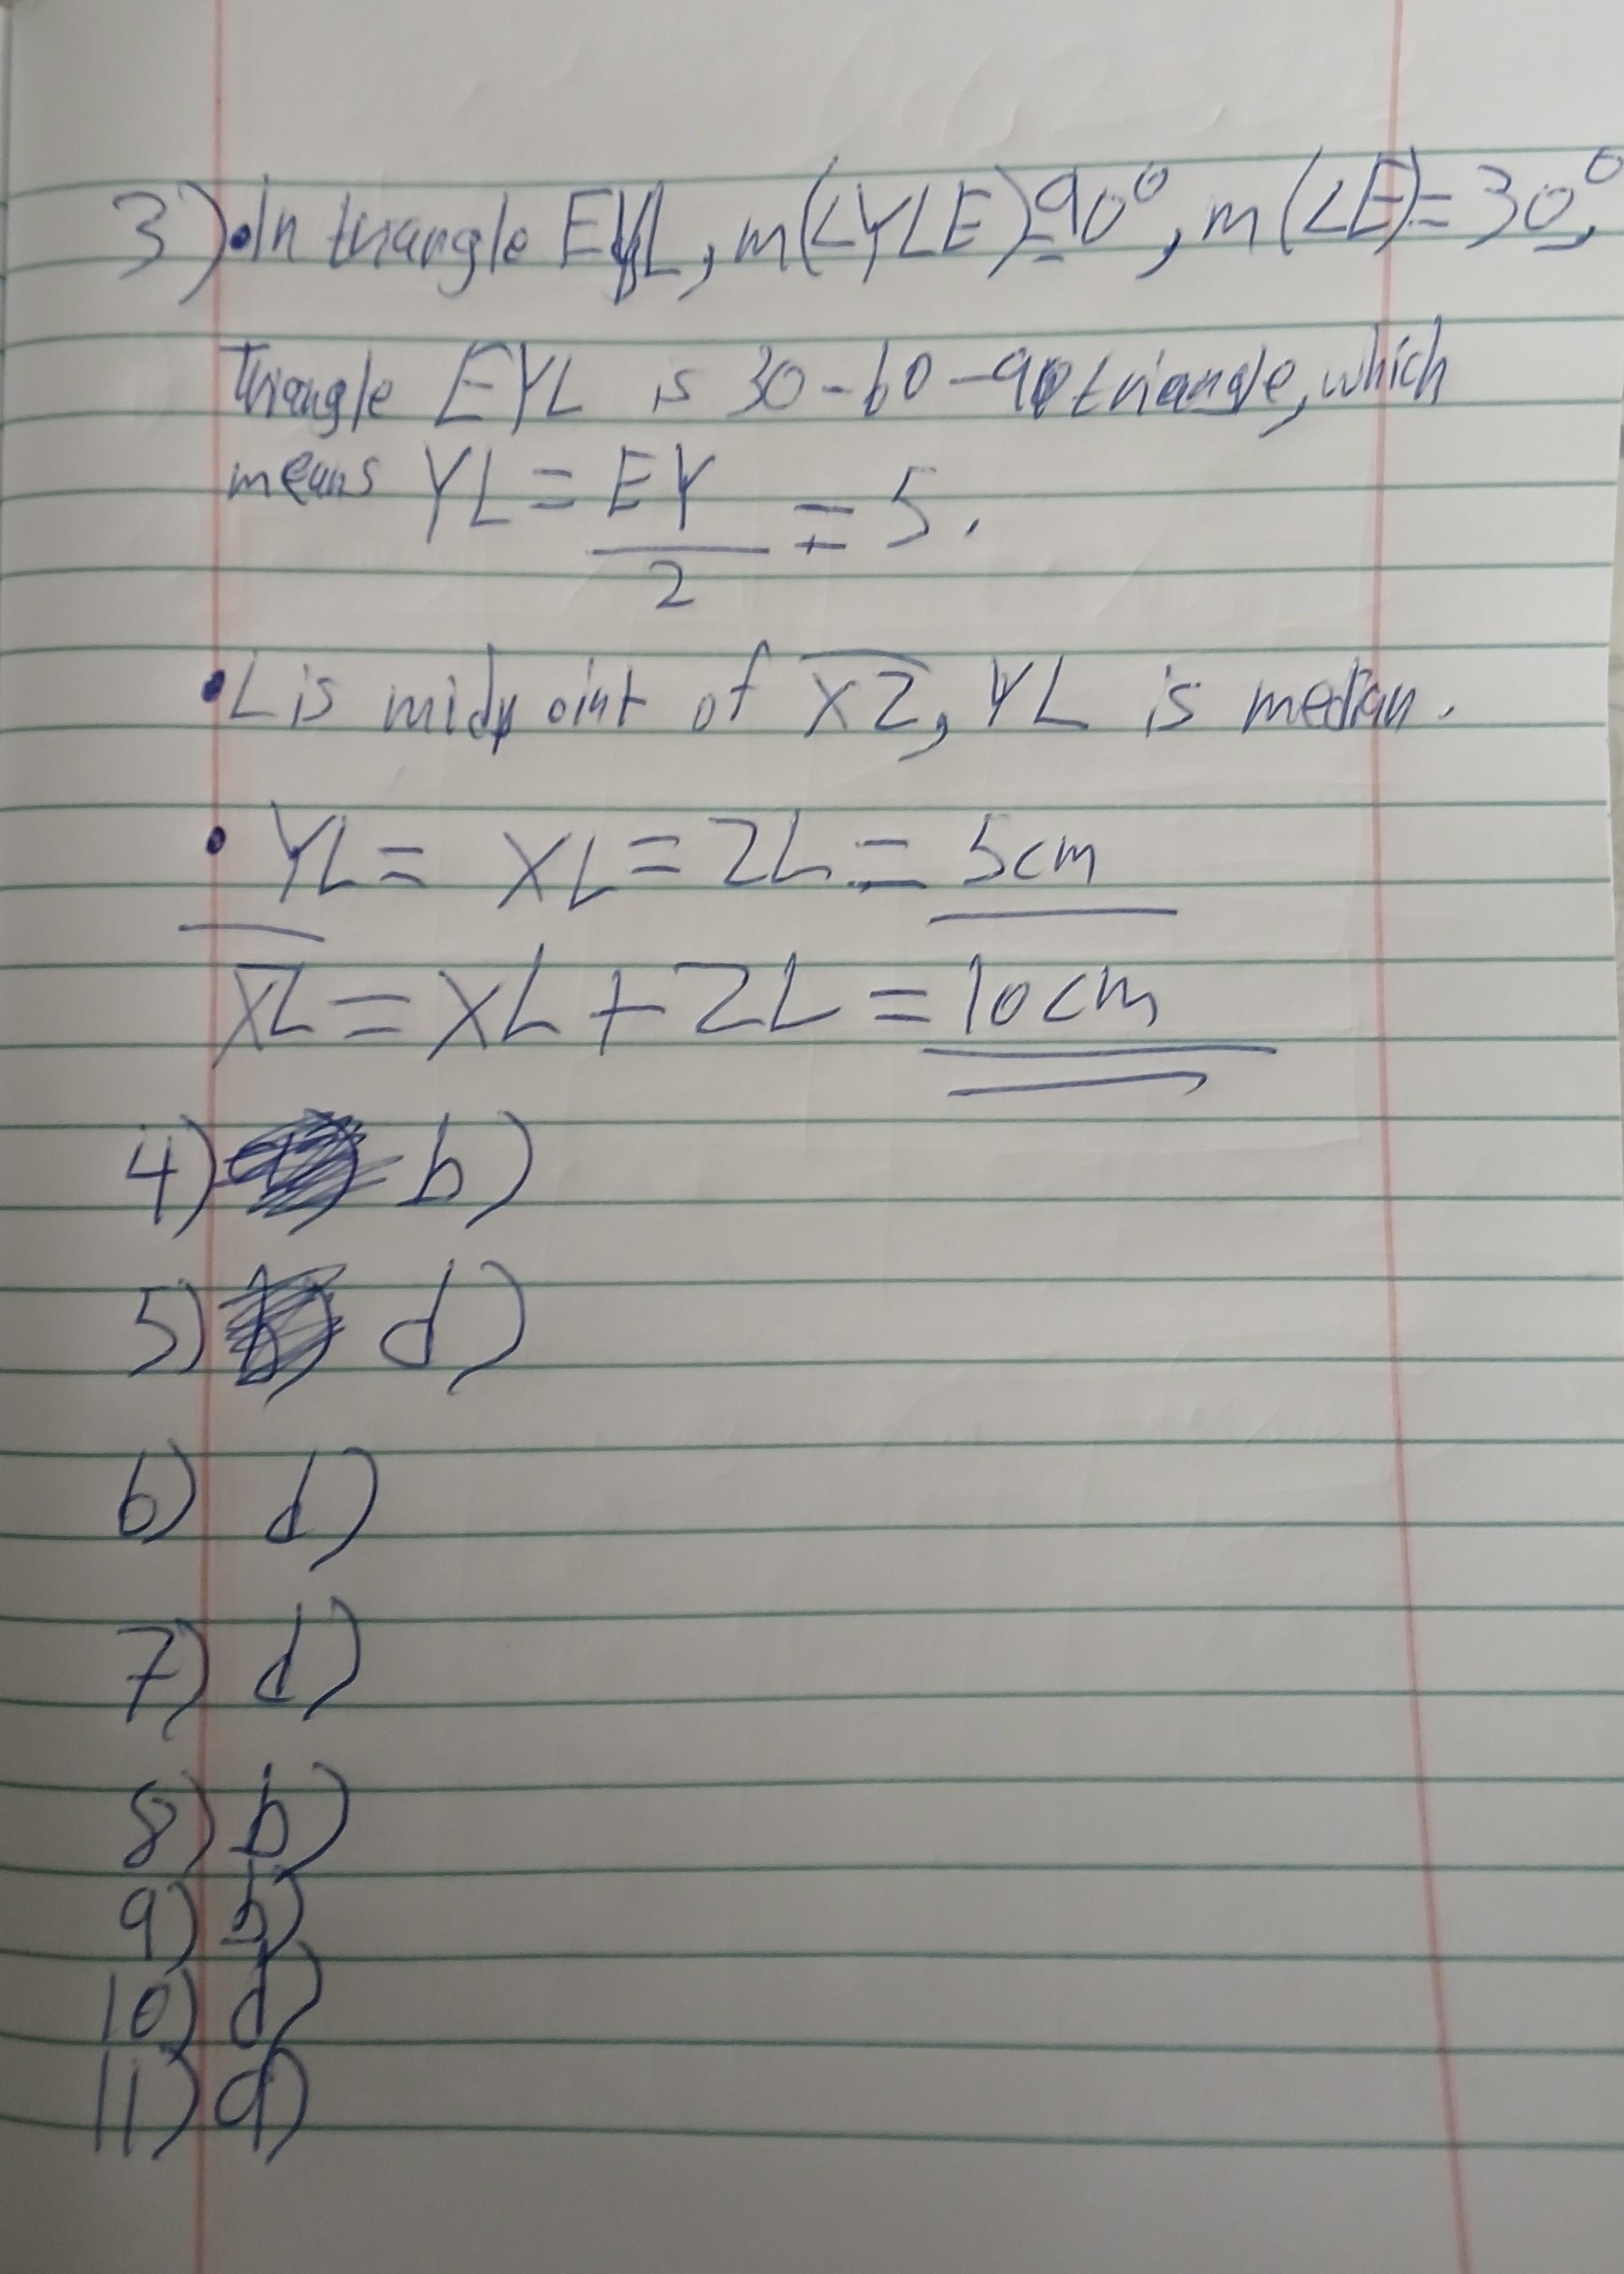 3) • In triangle EYL, m(∠YLE)=90°, m(∠E)=30°,
Triangle EYL is 30-60-90 triangle, which
means YL = EY/2 = 5.
• L is midpoint of XZ, YL is median.
• YL = XL = ZL = 5cm
XL = XL + ZL = 10cm
4) b)
5) d)
6) d)
7) d)
8) b)
9) b)
10) d)
11) d)